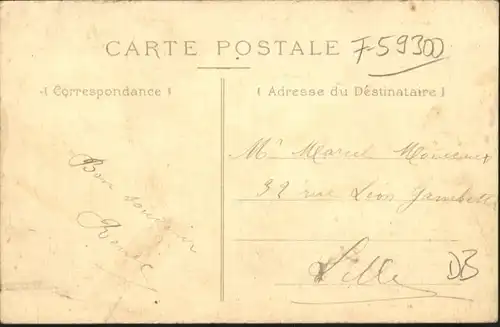 CARTE POSTALE
F-59300
Correspondance
Adresse du Destinataire
Bon souvenir
Mr Marcel
32 rue Léon Gambetta
Lille
DB